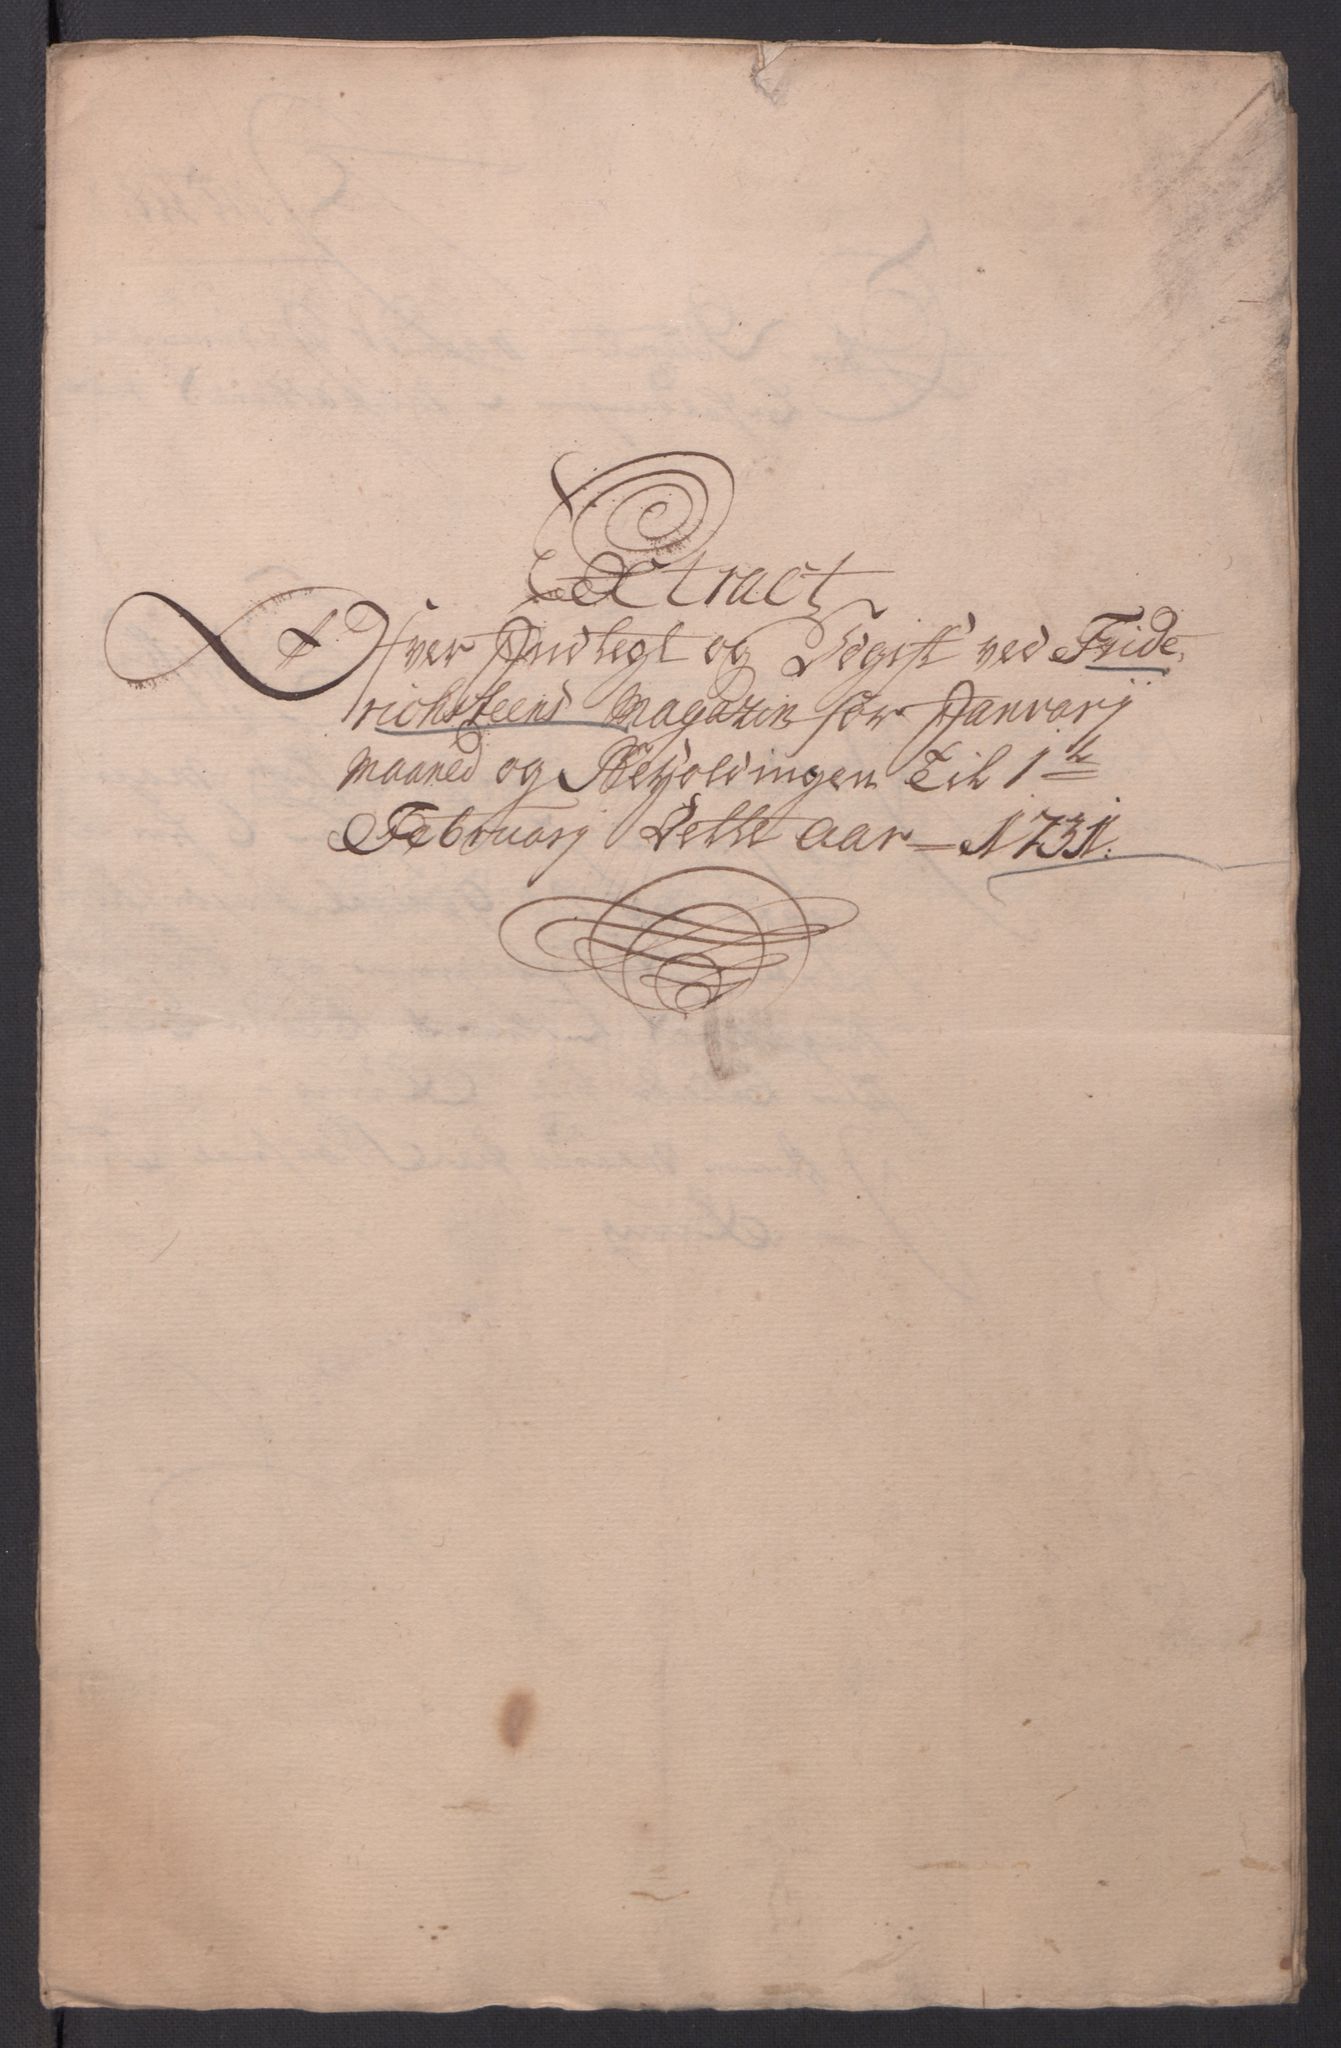 Extract
Ofver Indtegt og Udgift ved Fride,
richsteens Magazin for Januarij
Maaned og Beholdingen Til 1te
Februarij Dette aar — 1731.